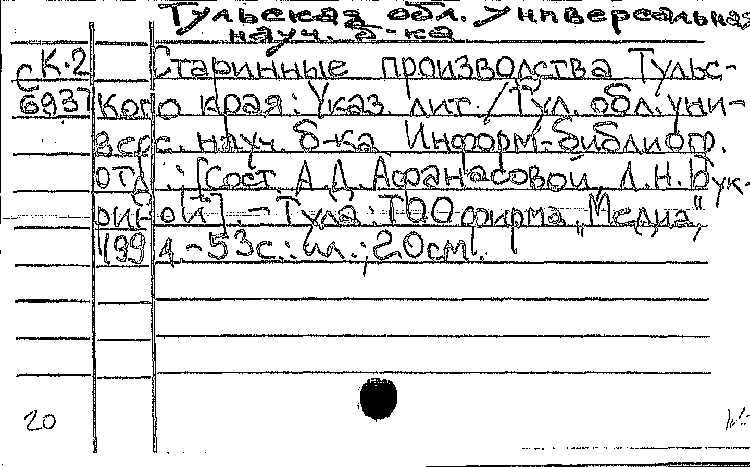 Тульская обл. универсальная
науч. б-ка
СК-2 Старинные производства Тульс-
6937 кого края: Указ. лит. / Тул. обл. уни-
верс. науч. б-ка. Информ.-библиогр.
отд.; [Сост. А.Д. Афанасовой, Л.Н. Бук-
риной]. - Тула: ТОО фирма „Медиа",
1994. - 53с.: ил.; 20см.
20